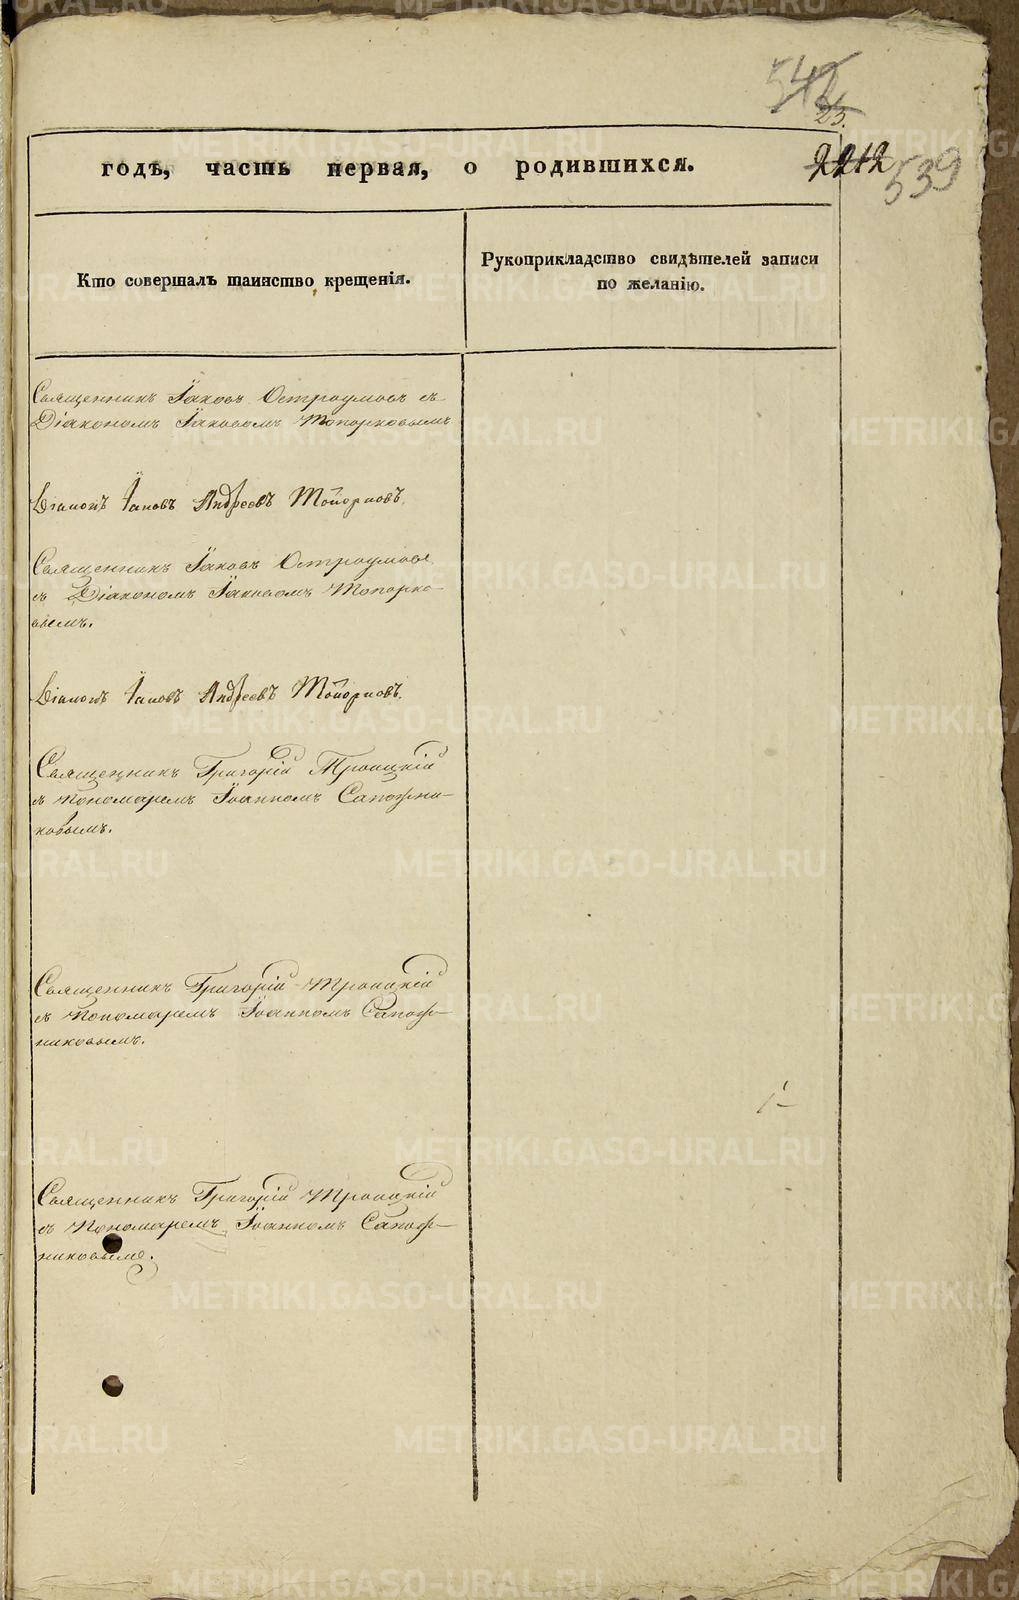 542
23.
годъ, часть первая, о родившихся.
2212
539
Кто совершалъ таинство крещенія.
Рукоприкладство свидѣтелей записи
по желанію.
Священникъ Іаковъ Остроумовъ съ
Діакономъ Іаковомъ Топорковымъ
Діаконъ Іаковъ Андреевъ Топорковъ.
Священникъ Іаковъ Остроумовъ
съ Діакономъ Іаковомъ Топорко-
вымъ.
Діаконъ Іаковъ Андреевъ Топорковъ.
Священникъ Григорій Троицкій
съ Пономаремъ Іоанномъ Сапожни-
ковымъ.
Священникъ Григорій Троицкій
съ Пономаремъ Іоанномъ Сапож-
никовымъ.
Священникъ Григорій Троицкій
съ Пономаремъ Іоанномъ Сапож-
никовымъ.
METRIKI.GASO-URAL.RU